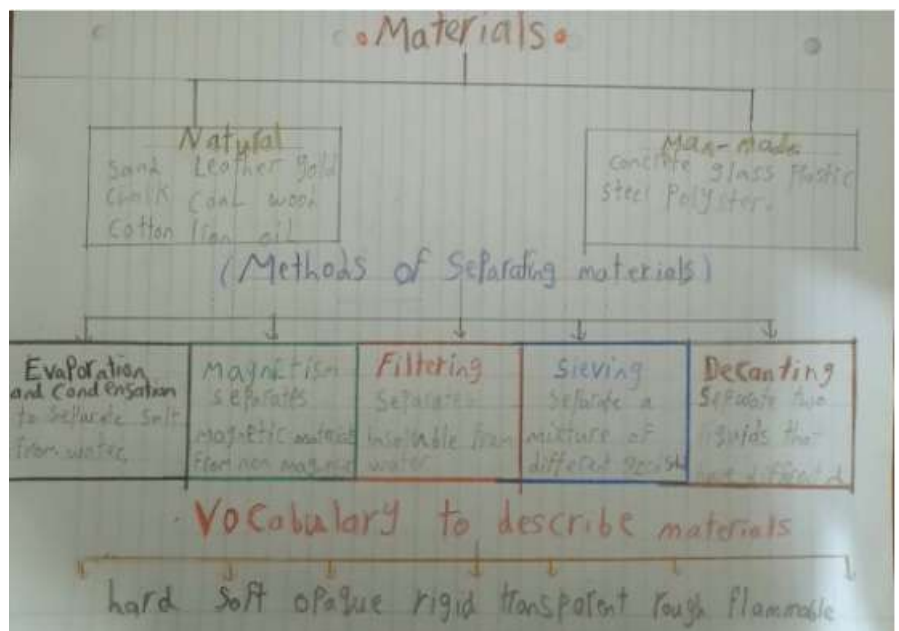 Materials
Natural
Sand Leather gold
Chalk Coal wood
Cotton Iron oil
Man-made
Concrete glass Plastic
Steel Polyster.
(Methods of Separating materials)
Evaporation
and Condensation
to Separate Salt
from water
Magnetism
separates
Magnetic material
from non magnetic
Filtering
Separates
insoluble from
water
Sieving
Separate a
mixture of
different
Decanting
Separate two
liquids that
different
Vocabulary to describe materials
hard soft opaque rigid transparent rough flammable